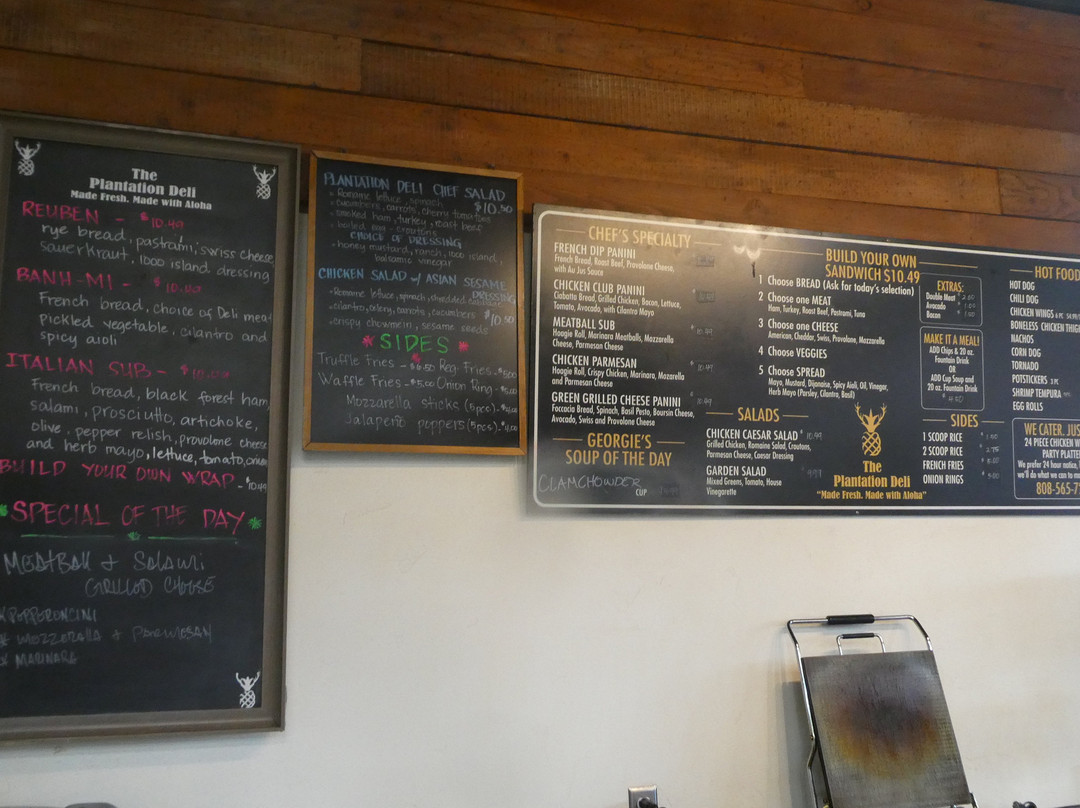 The
Plantation Deli
Made Fresh. Made with Aloha
REUBEN - $10.49
rye bread, pastrami, swiss cheese
sauerkraut, 1000 island dressing
BANH-MI -
French bread, choice of Deli meat
Pickled vegetable, cilantro and
spicy aioli
ITALIAN SUB -
French bread, black forest ham
salami, prosciutto, artichoke,
olive, pepper relish, provolone cheese
and herb mayo, lettuce, tomato, onion
BUILD YOUR OWN WRAP - $10.49
SPECIAL OF THE DAY
MEATBALL & SALAMI
GRILLED CHEESE
PEPPERONCINI
MOZZERALLA & PARMESAN
MARINARA
PLANTATION DELI CHEF SALAD
$10.50
Romaine lettuce, spinach
cucumbers, carrots, cherry tomatoes
smoked ham, turkey, roast beef
boiled egg, croutons
CHOICE OF DRESSING
honey mustard, ranch, 1000 island,
balsamic vinegar
CHICKEN SALAD w/ ASIAN SESAME
DRESSING
Romaine lettuce, spinach, shredded
cilantro, celery, carrots, cucumbers $10.50
crispy chowmein, sesame seeds
SIDES
Truffle Fries - $6.50 Reg. Fries -
Waffle Fries - $5.00 Onion Ring -
Mozzarella sticks (5pcs)
Jalapeño poppers (5pcs)
CHEF'S SPECIALTY
FRENCH DIP PANINI
French Bread, Roast Beef, Provolone Cheese,
with Au Jus Sauce
CHICKEN CLUB PANINI
Ciabatta Bread, Grilled Chicken, Bacon, Lettuce,
Tomato, Avocado, with Cilantro Mayo
MEATBALL SUB 10.49
Hoagie Roll, Marinara Meatballs, Mozzarella
Cheese, Parmesan Cheese
CHICKEN PARMESAN 10.49
Hoagie Roll, Crispy Chicken, Marinara, Mozarella
and Parmesan Cheese
GREEN GRILLED CHEESE PANINI 10.49
Foccacia Bread, Spinach, Basil Pesto, Boursin Cheese,
Avocado, Swiss and Provolone Cheese
GEORGIE'S
SOUP OF THE DAY
CLAMCHOWDER
CUP
BUILD YOUR OWN
SANDWICH $10.49
1 Choose BREAD (Ask for today's selection)
2 Choose one MEAT
Ham, Turkey, Roast Beef, Pastrami, Tuna
3 Choose one CHEESE
American, Cheddar, Swiss, Provolone, Mozzarella
4 Choose VEGGIES
5 Choose SPREAD
Mayo, Mustard, Dijonaise, Spicy Aioli, Oil, Vinegar,
Herb Mayo (Parsley, Cilantro, Basil)
SALADS
CHICKEN CAESAR SALAD 10.49
Grilled Chicken, Romaine Salad, Croutons,
Parmesan Cheese, Caesar Dressing
GARDEN SALAD
Mixed Greens, Tomato, House
Vinegarette
The
Plantation Deli
"Made Fresh. Made with Aloha"
EXTRAS:
Double Meat 2.50
Avocado 1.00
Bacon 1.50
MAKE IT A MEAL!
ADD Chips & 20 oz.
Fountain Drink
OR
ADD Cup Soup and
20 oz. Fountain Drink
SIDES
1 SCOOP RICE
2 SCOOP RICE
FRENCH FRIES
ONION RINGS
HOT FOOD
HOT DOG
CHILI DOG
CHICKEN WINGS
BONELESS CHICKEN THIGH
NACHOS
CORN DOG
TORNADO
POTSTICKERS
SHRIMP TEMPURA
EGG ROLLS
WE CATER. JUS
24 PIECE CHICKEN W
PARTY PLATTE
We prefer 24 hour notice,
we'll do what we can to ma
808-565-7